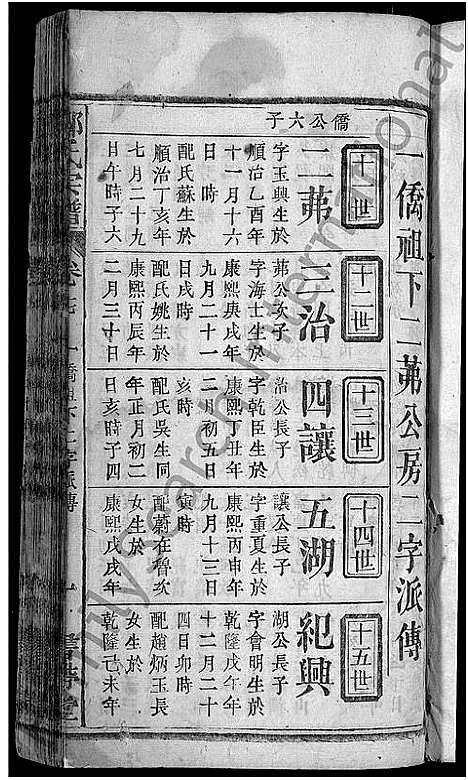 一僑祖下二茀公房二字派傳
十一世
僑公六子
二茀
字玉興生於
順治乙酉年
十一月十六
日 時
配氏蘇生於
順治丁亥年
七月二十九
日午時子六
十二世
茀公次子
三治
字海士生於
康熙庚戌年
九月二十一
日戌時
配氏姚生於
康熙丙辰年
二月三十日
十三世
治公長子
四讓
字乾臣生於
康熙丁丑年
二月初五日
亥時
配氏吳生同
年正月初二
日亥時子四
十四世
讓公長子
五湖
字重夏生於
康熙丙申年
九月十三日
寅時
配蔚在魯次
女生於
康熙戊戌年
十五世
湖公長子
紀興
字會明生於
乾隆戊午年
十二月二十
四日卯時
配趙炳玉長
女生於
乾隆己未年
氏宗譜
卷七
一僑祖下二字派傳